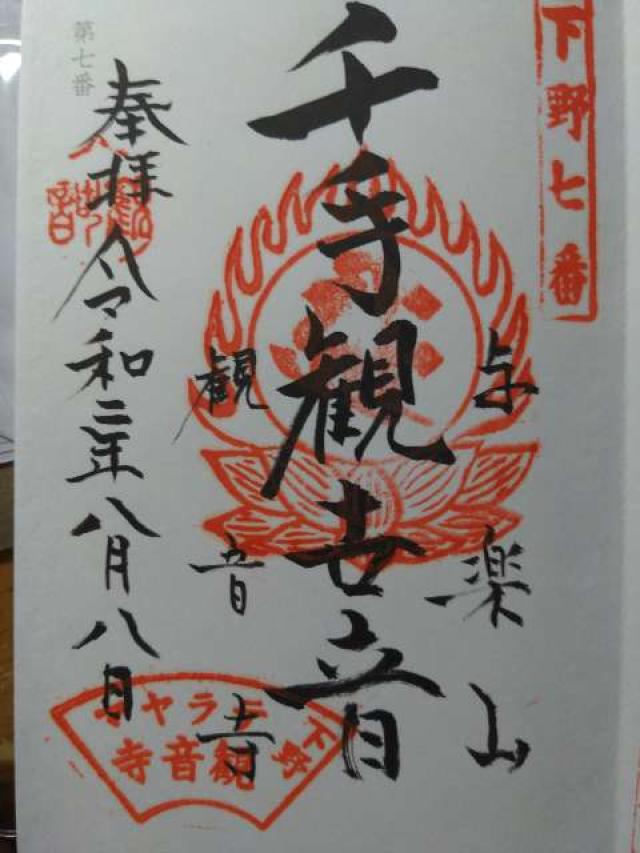 下野七番
与楽山
千手観世音
観音寺
奉拝
令和二年八月八日
第七番
下野
観音寺